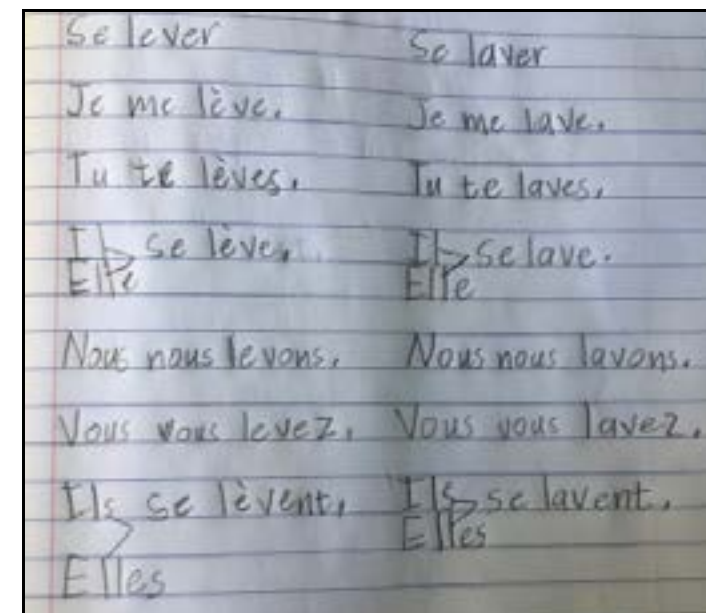 Se lever
Je me lève.
Tu te lèves.
Il
Elle
se lève.
Nous nous levons.
Vous vous levez.
Ils
Elles
se lèvent.
Se laver
Je me lave.
Tu te laves.
Il
Elle
se lave.
Nous nous lavons.
Vous vous lavez.
Ils
Elles
se lavent.